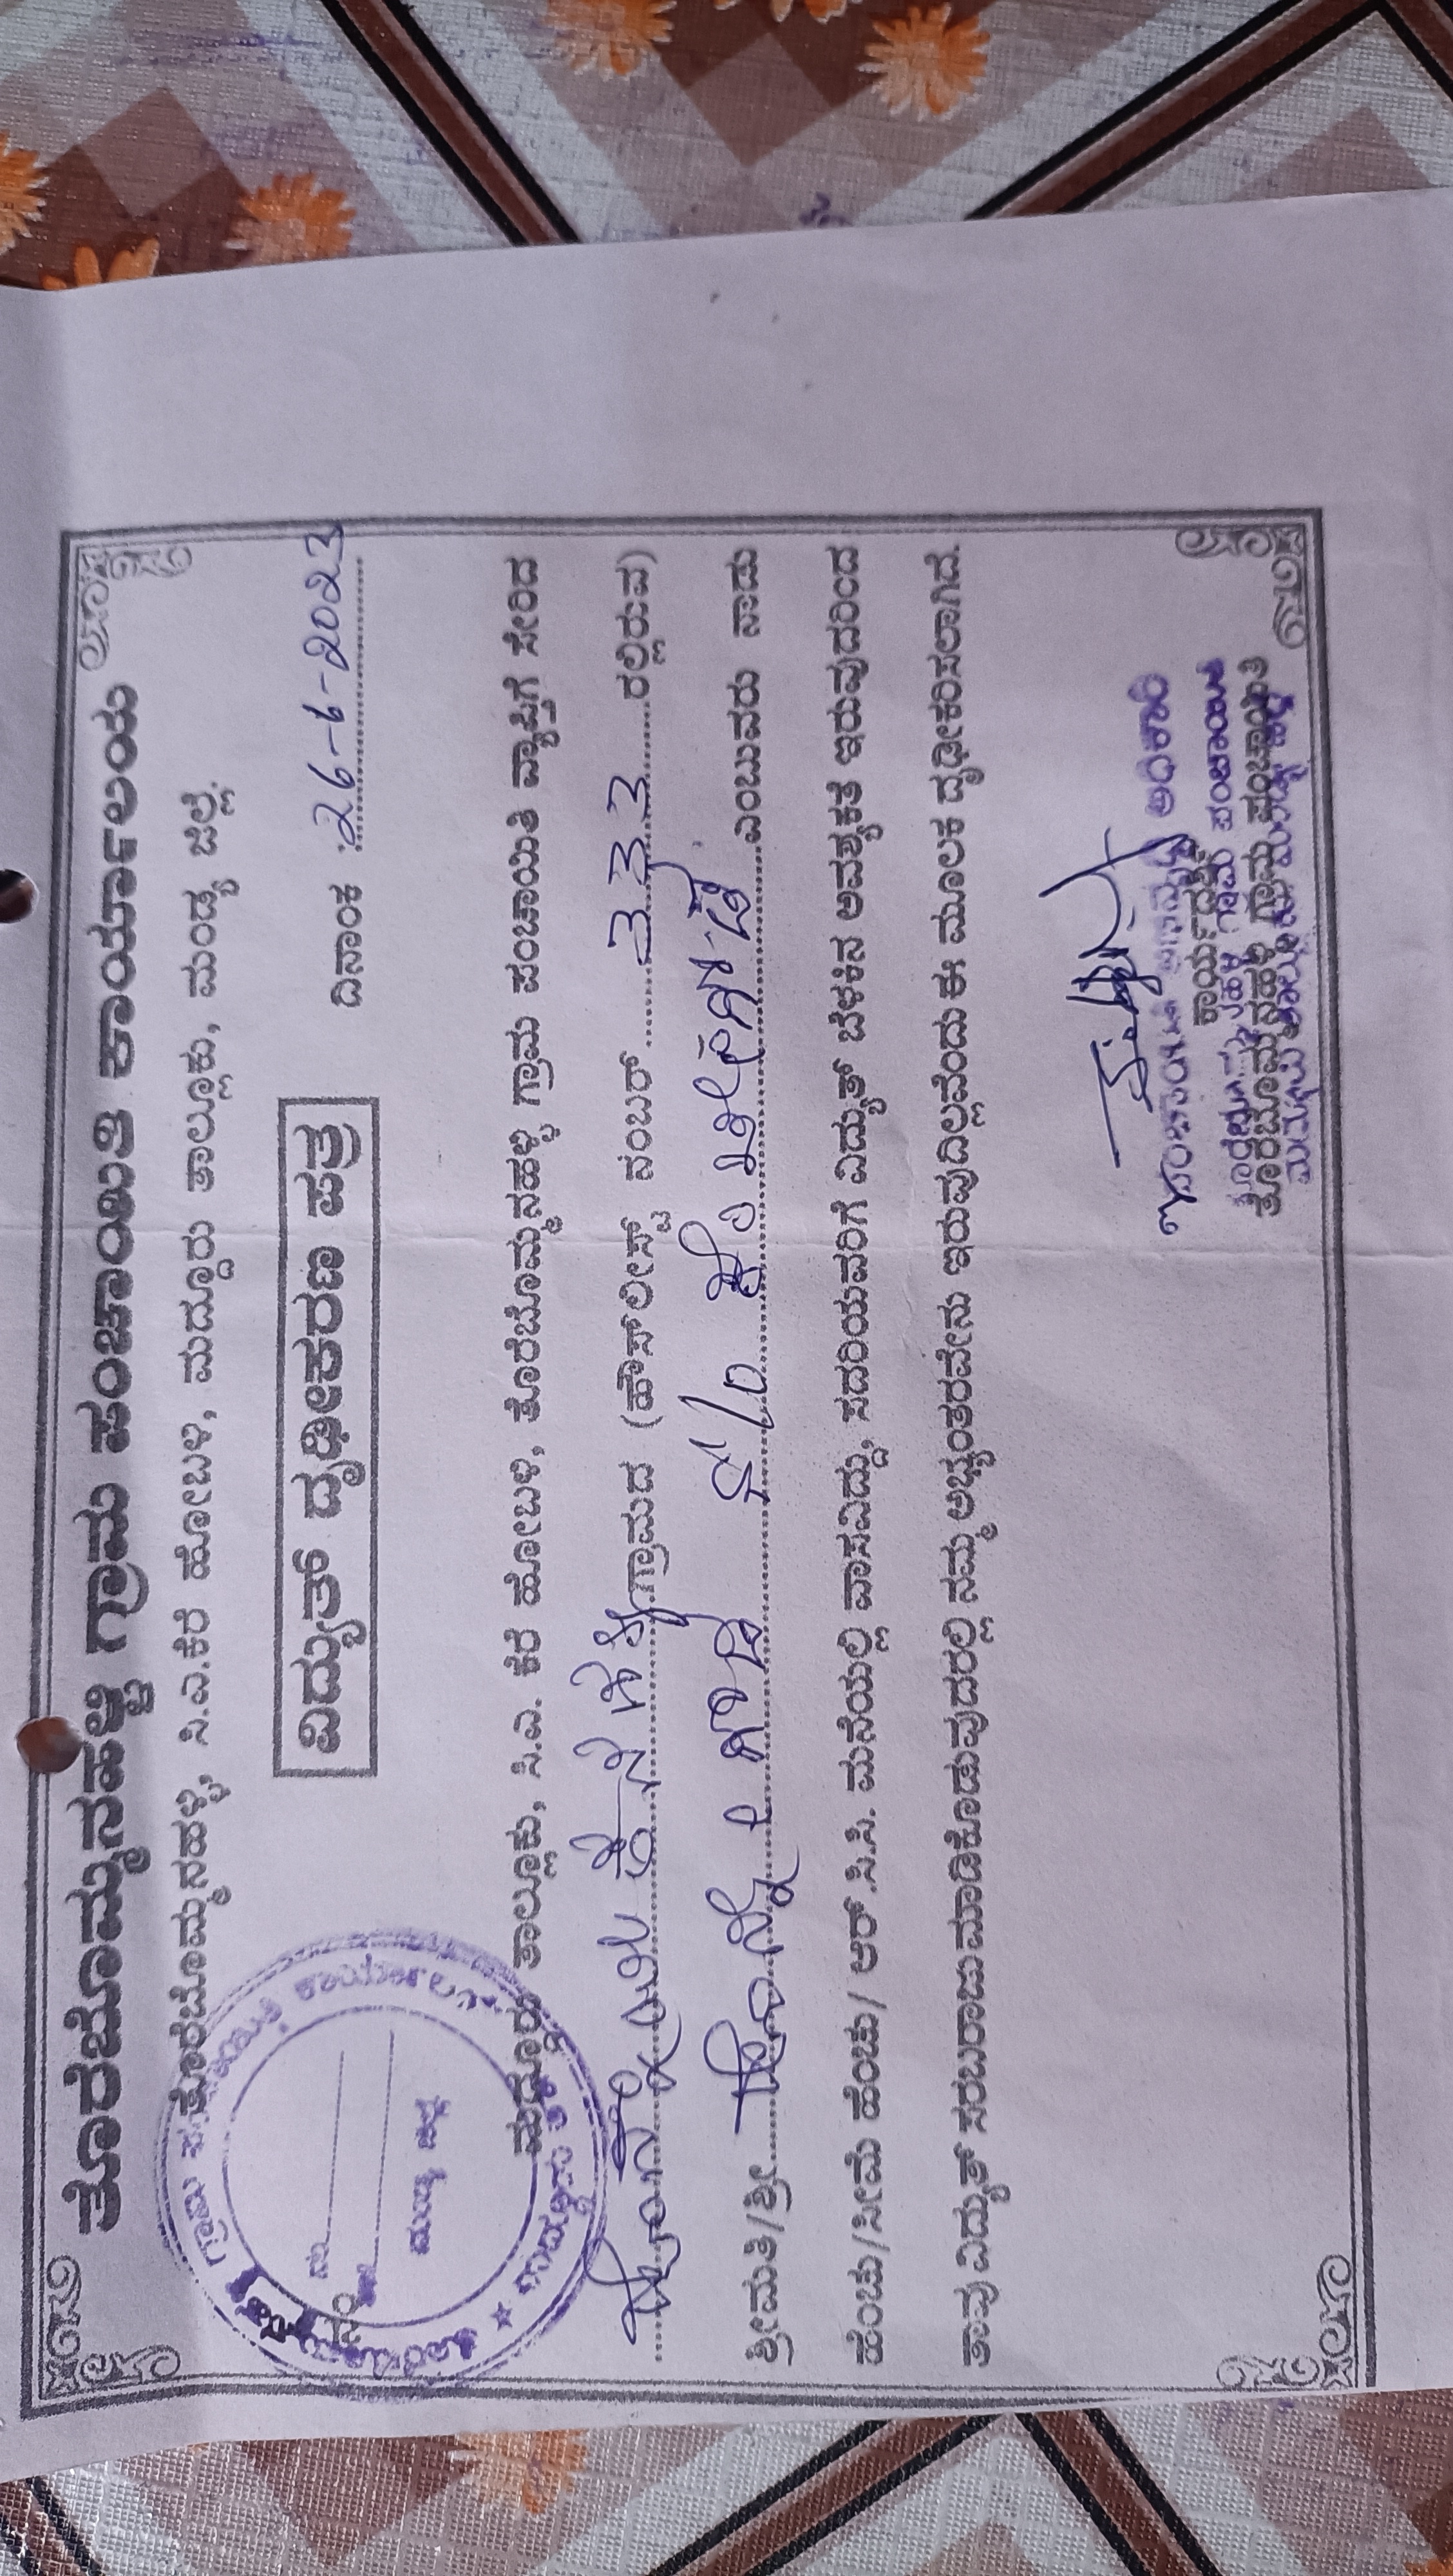 ತೊರೆಬೊಮ್ಮನಹಳ್ಳಿ ಗ್ರಾಮ ಪಂಚಾಯಿತಿ ಕಾರ್ಯಾಲಯ
ತೊರೆಬೊಮ್ಮನಹಳ್ಳಿ, ಸಿ.ಎ.ಕೆರೆ ಹೋಬಳಿ, ಮದ್ದೂರು ತಾಲ್ಲೂಕು, ಮಂಡ್ಯ ಜಿಲ್ಲೆ.
ದಿನಾಂಕ :26-6-2023
ವಿದ್ಯುತ್ ದೃಢೀಕರಣ ಪತ್ರ
ಮದ್ದೂರು ತಾಲ್ಲೂಕು, ಸಿ.ಎ. ಕೆರೆ ಹೋಬಳಿ, ತೊರೆಬೊಮ್ಮನಹಳ್ಳಿ ಗ್ರಾಮ ಪಂಚಾಯಿತಿ ವ್ಯಾಪ್ತಿಗೆ ಸೇರಿದ
ಗ್ರಾಮದ (ಹೌಸ್‌ಲೀಸ್ಟ್ ನಂಬರ್ 333 ರಲ್ಲಿರುವ)
ಶ್ರೀಮತಿ/ಶ್ರೀ S/o ಎಂಬುವರು ನಾಡು
ಹೆಂಚು/ಸೀಮೆ ಹೆಂಚು/ ಆರ್.ಸಿ.ಸಿ. ಮನೆಯಲ್ಲಿ ವಾಸವಿದ್ದು, ಸದರಿಯವರಿಗೆ ವಿದ್ಯುತ್ ಬೆಳಕಿನ ಅವಶ್ಯಕತೆ ಇರುವುದರಿಂದ
ತಾವು ವಿದ್ಯುತ್ ಸರಬರಾಜು ಮಾಡಿಕೊಡುವುದರಲ್ಲಿ ನಮ್ಮ ಅಭ್ಯಂತರವೇನು ಇರುವುದಿಲ್ಲವೆಂದು ಈ ಮೂಲಕ ದೃಢೀಕರಿಸಲಾಗಿದೆ.
ಪಂಚಾಯಿತಿ ಅಭಿವೃದ್ಧಿ ಅಧಿಕಾರಿ
ಕಾರ್ಯದರ್ಶಿ
ತೊರೆಬೊಮ್ಮನಹಳ್ಳಿ ಗ್ರಾಮ ಪಂಚಾಯಿತಿ